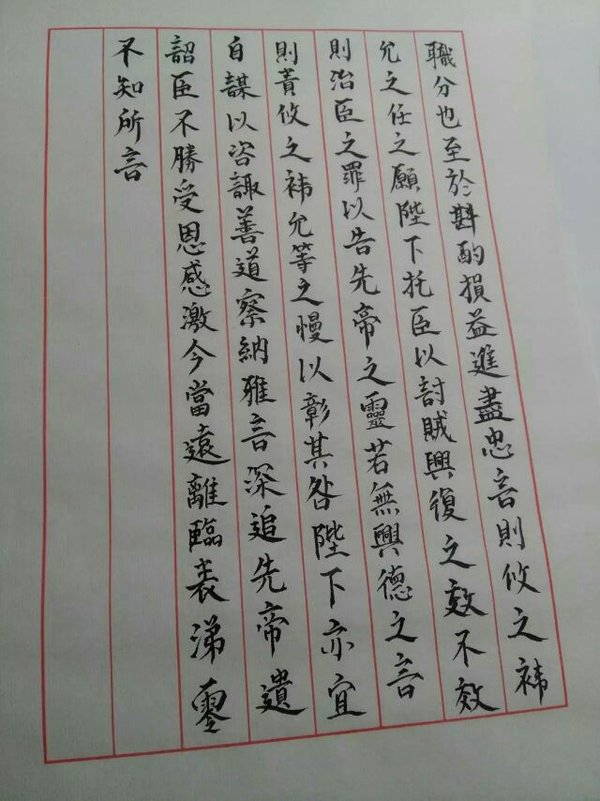 職分也至於斟酌損益進盡忠言則攸之褘
允之任之願陛下托臣以討賊興復之效不效
則治臣之罪以告先帝之靈若無興德之言
則責攸之褘允等之慢以彰其咎陛下亦宜
自謀以咨諏善道察納雅言深追先帝遺
詔臣不勝受恩感激今當遠離臨表涕零
不知所言